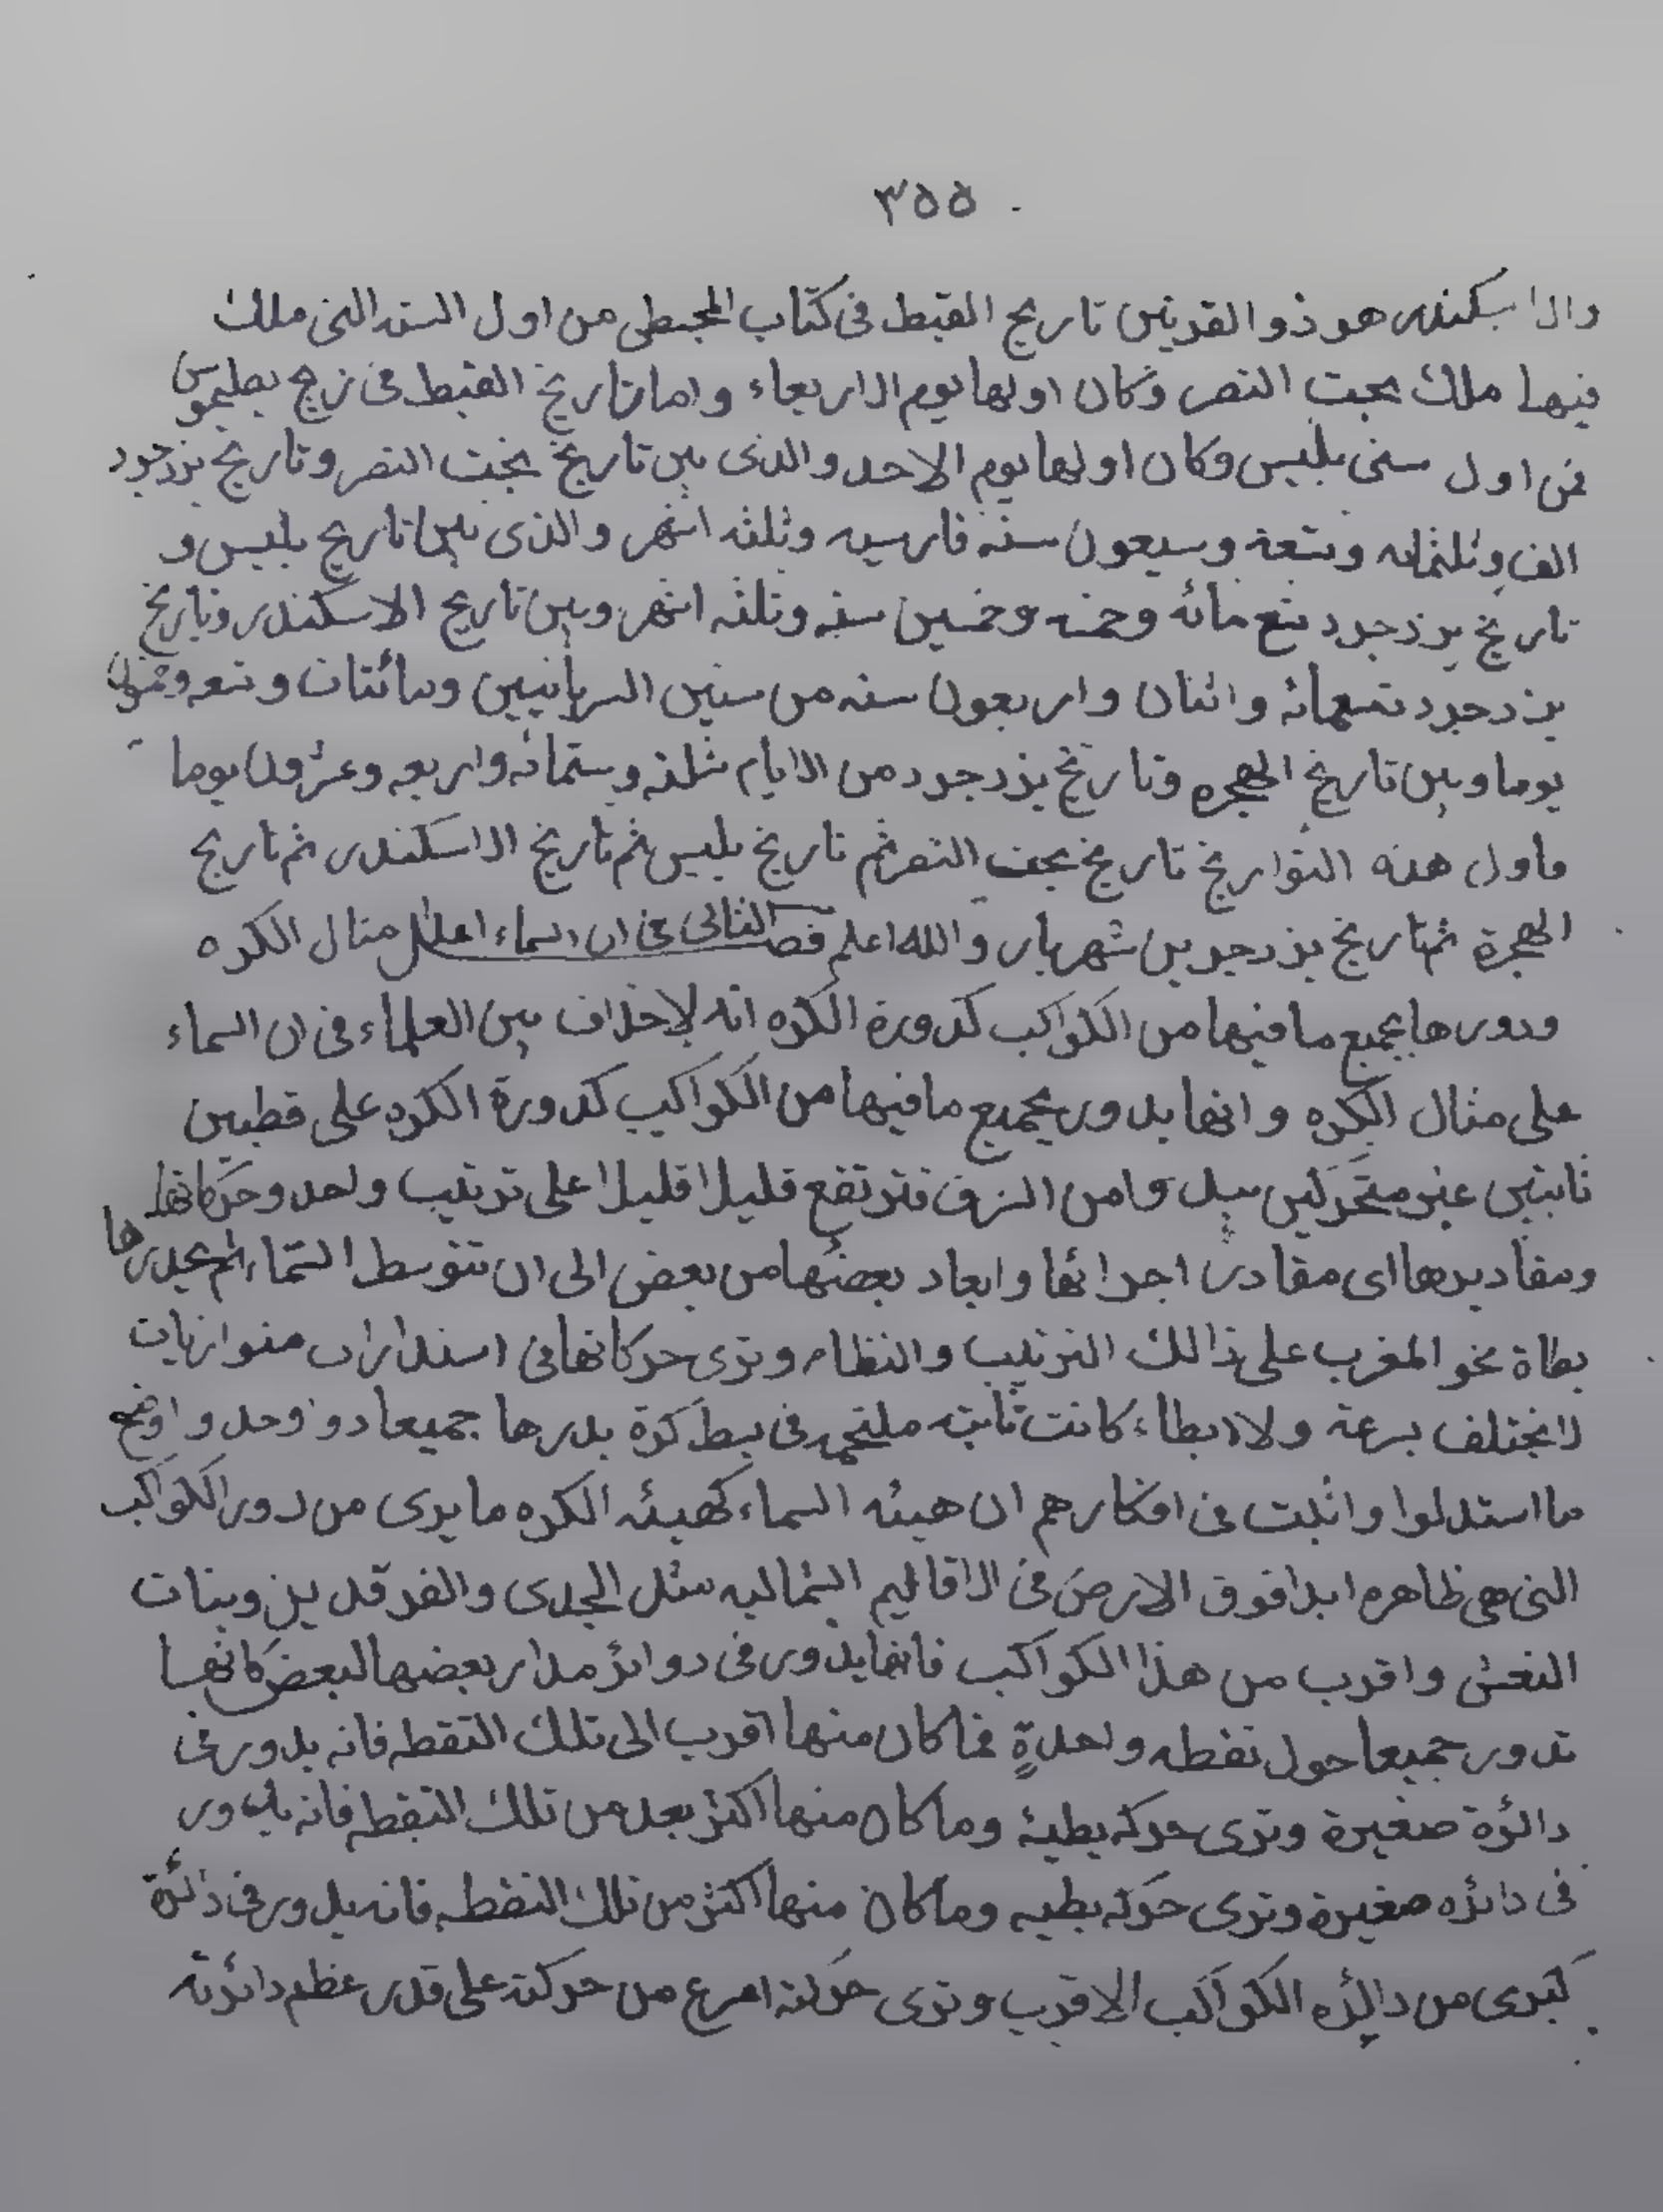 ٣٥٥
والاسكندر هو ذو القرنين تاريخ القبط في كتاب المجسطي من اول السنه التي ملك
فيها ملك بخت النصر وكان اولها يوم الاربعاء واما تاريخ القبط في زيج بطليموس
فمن اول سنى بلبس وكان اولها يوم الاحد والذى بين تاريخ بخت النصر وتاريخ يزدجرد
الف وثلثمائه وتسعة وسبعون سنه فارسيه وثلثه اشهر والذى بين تاريخ بلبس و
تاريخ يزدجرد تسع مائه وخمسه وخمسين سنه وثلثه اشهر وبين تاريخ الاسكندر وتاريخ
يزدجرد تسعمائه واثنان واربعون سنه من سنين السريانيين ومائتان وتسعه وخمسون
يوما وبين تاريخ الهجره وتاريخ يزدجرد من الايام ثلثه وستمائه واربعه وعشرون يوما
فاول هذه التواريخ تاريخ بخت النصر ثم تاريخ بلبس ثم تاريخ الاسكندر ثم تاريخ
الهجرة ثم تاريخ يزدجر بن شهريار والله اعلم فصل الثانى فى ان السماء على مثال الكره
ودورها بجميع ما فيها من الكواكب كدورة الكره انه لا خلاف بين العلماء فى ان السماء
على مثال الكره وانها يدور بجميع ما فيها من الكواكب كدورة الكره على قطبين
ثابتين غير متحركين من الشرق فترتفع قليلا قليلا على ترتيب واحد وحركاتها
ومقاديرها اى مقادر اجرائها وابعاد بعضها من بعض الى ان تتوسط السماء ثم يحدرها
بطاة نحو المغرب على ذالك الترتيب والنظام وترى حركاتها فى استدارات متوازيات
لا يختلف بسرعة ولا ابطاء كانت ثابته ملتحمه فى بسط كرة يدرها جميعا دوا واحد واوضح
ما استدلوا واثبت فى افكارهم ان هيئه السماء كهيئه الكره ما يرى من دور الكواكب
التى هى ظاهره ابدا فوق الارض فى الاقاليم الشماليه مثل الجدى والفرقدين وبنات
النعش واقرب من هذا الكواكب فانها يدور فى دوائر مدار بعضها لبعض كانها
تدور جميعا حول نقطه واحدةٍ فما كان منها اقرب الى تلك النقطه فانه يدور فى
دائرة صغيرة وترى حركه بطيئه وما كان منها اكثر بعد من تلك النقطه فانه يدور
فى دائره صغيرة وترى حركه بطيه وما كان منها اكثر من تلك النقطه فانه يدور فى دائرة
كبرى من دائره الكواكب الاقرب وترى حركته اسرع من حركته على قدر عظم دائرته